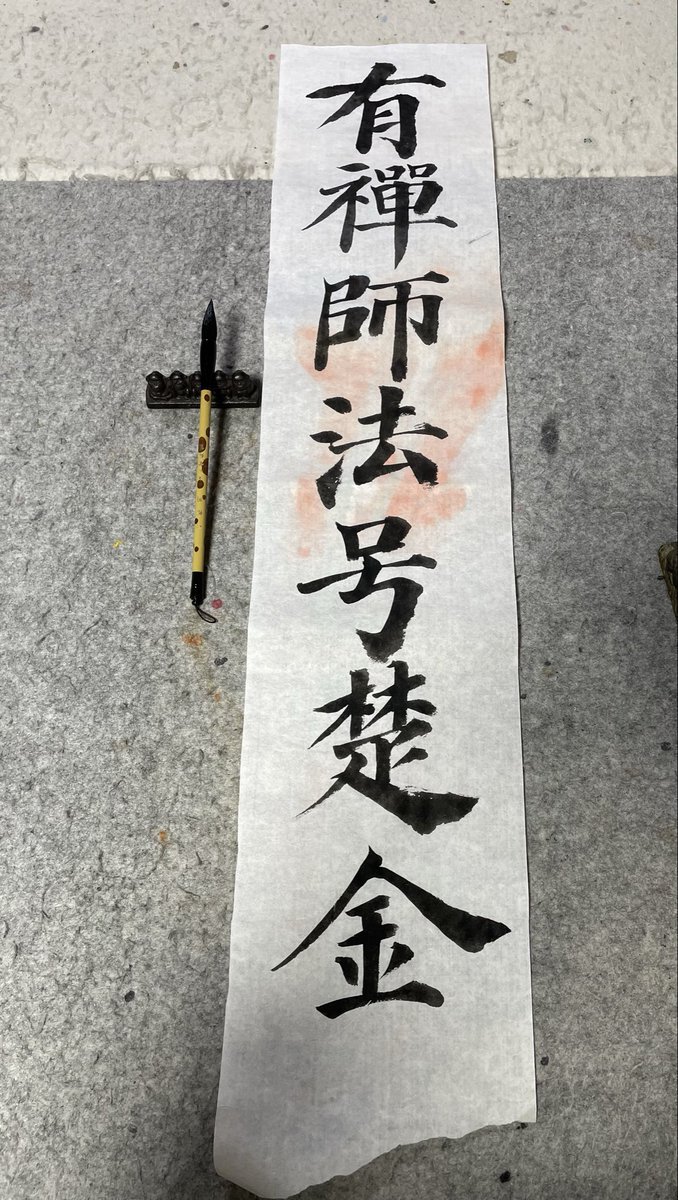 有禪師法号楚金